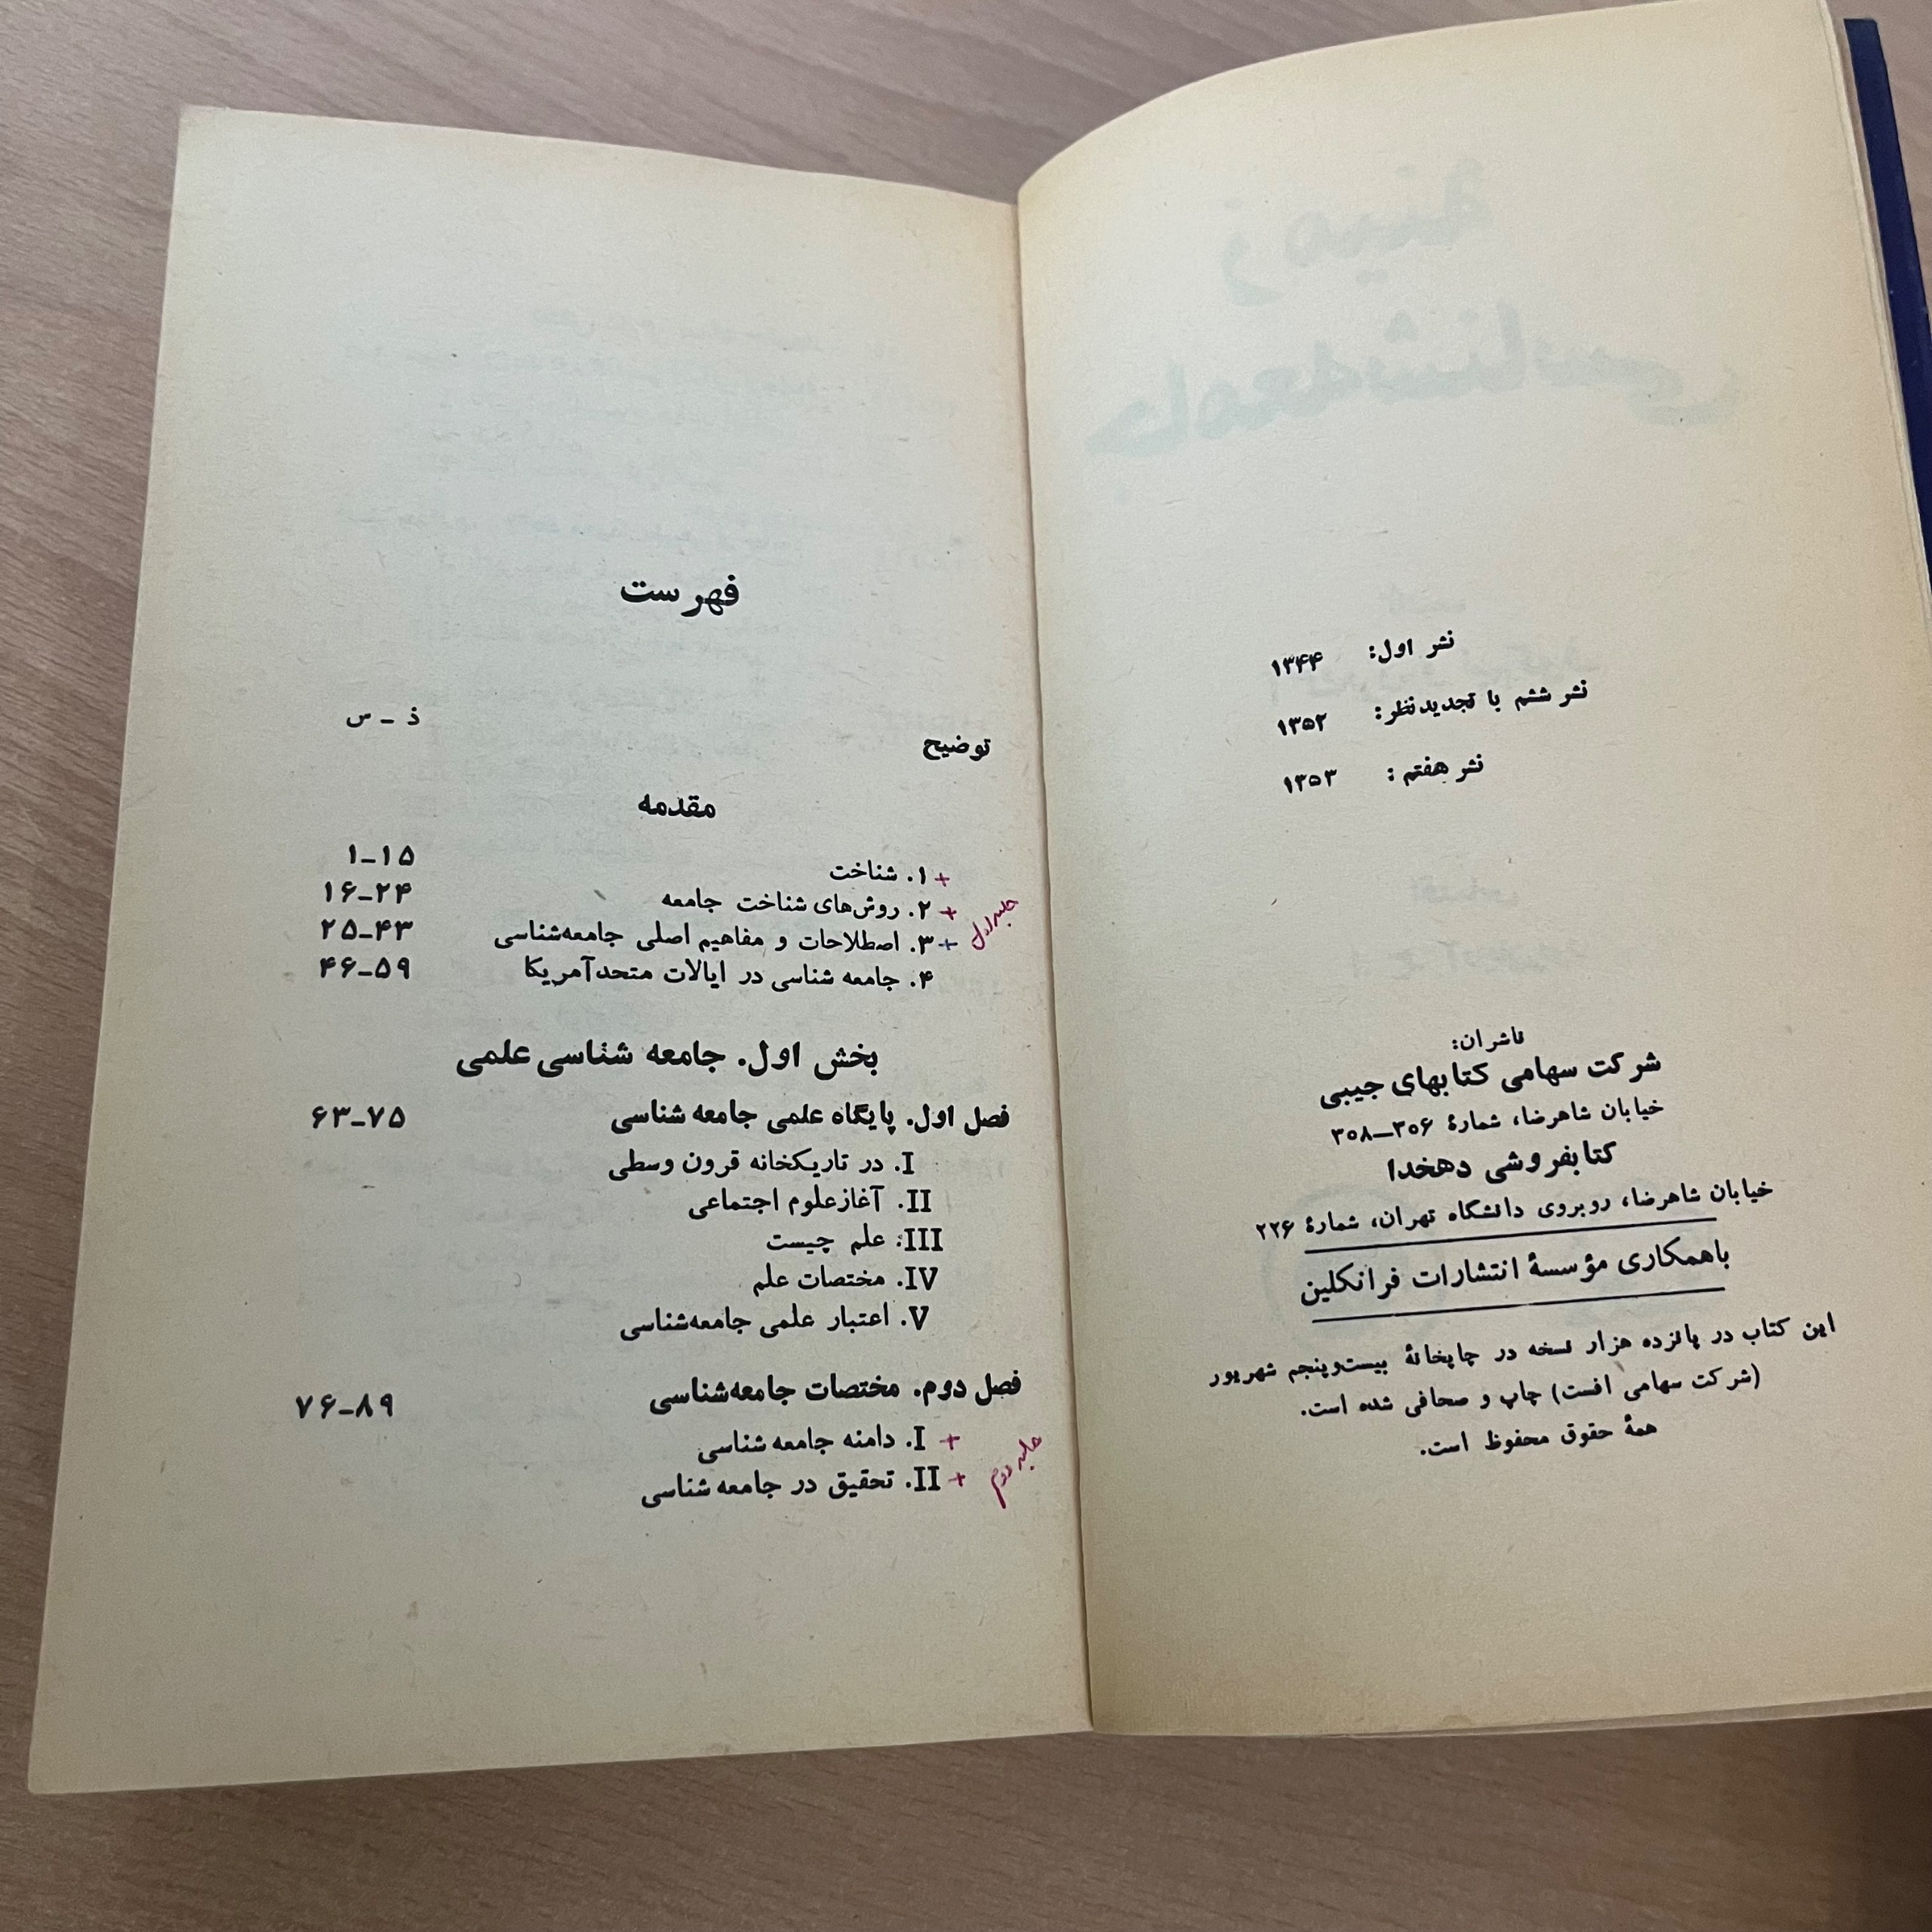 زمینه
جامعه‌شناسی
نشر اول: ۱۳۴۴
نشر ششم با تجدیدنظر: ۱۳۵۲
نشر هفتم: ۱۳۵۳
ناشران:
شرکت سهامی کتابهای جیبی
خیابان شاهرضا، شمارهٔ ۳۰۶–۳۰۸
کتابفروشی دهخدا
خیابان شاهرضا، روبروی دانشگاه تهران، شمارهٔ ۲۲۶
باهمکاری مؤسسهٔ انتشارات فرانکلین
این کتاب در پانزده هزار نسخه در چاپخانهٔ بیست‌وپنجم شهریور
(شرکت سهامی افست) چاپ و صحافی شده است.
همهٔ حقوق محفوظ است.
فهرست
توضیح ذ - س
مقدمه
+ ۱. شناخت ۱–۱۵
+ ۲. روش‌های شناخت جامعه ۱۶–۲۴
+ ۳. اصطلاحات و مفاهیم اصلی جامعه‌شناسی ۲۵–۴۳
جلسه اول
۴. جامعه شناسی در ایالات متحدآمریکا ۴۶–۵۹
بخش اول. جامعه شناسی علمی
فصل اول. پایگاه علمی جامعه شناسی ۶۳–۷۵
I. در تاریکخانه قرون وسطی
II. آغازعلوم اجتماعی
III: علم چیست
IV. مختصات علم
V. اعتبار علمی جامعه‌شناسی
فصل دوم. مختصات جامعه‌شناسی ۷۶–۸۹
+ I. دامنه جامعه شناسی
+ II. تحقیق در جامعه شناسی
جلسه دوم